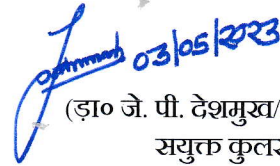 03/05/2023
(ड़ा० जे. पी. देशमुख/
सयुक्त